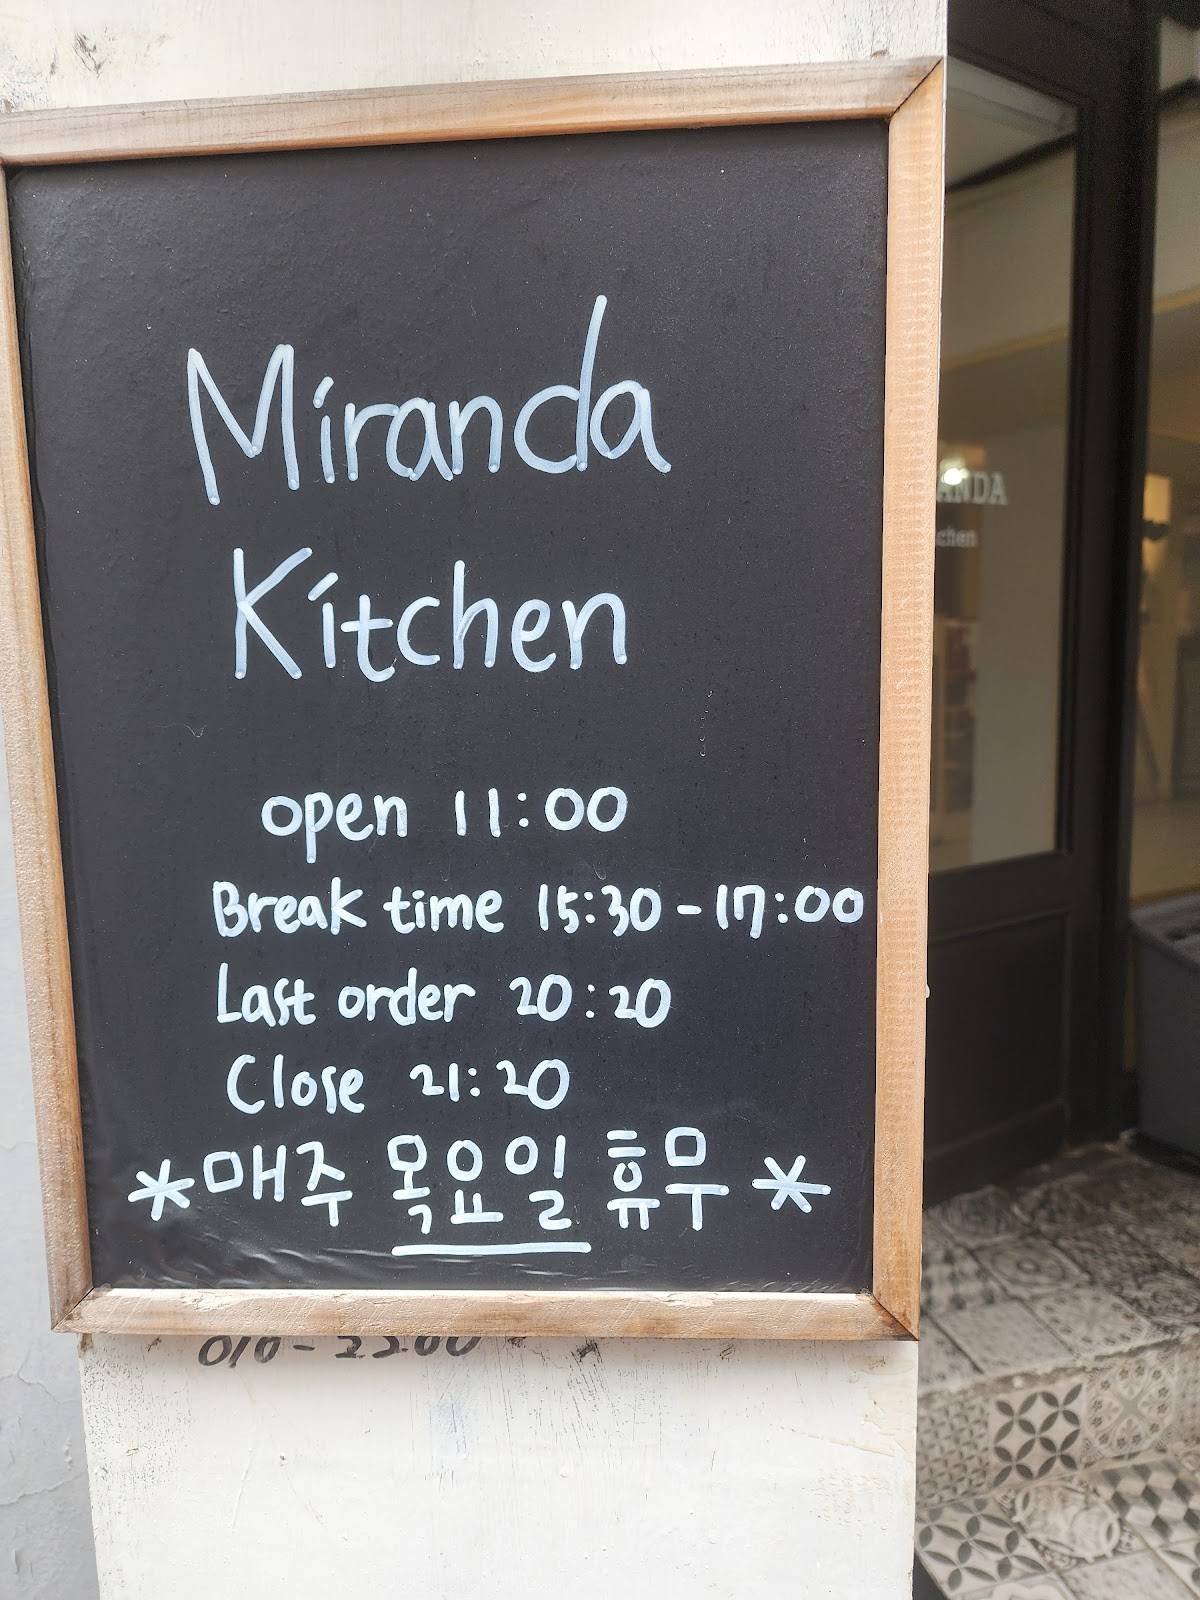 Miranda
Kitchen
open 11:00
Break time 15:30-17:00
Last order 20:20
Close 21:20
*매주 목요일 휴무*
ANDA
chen